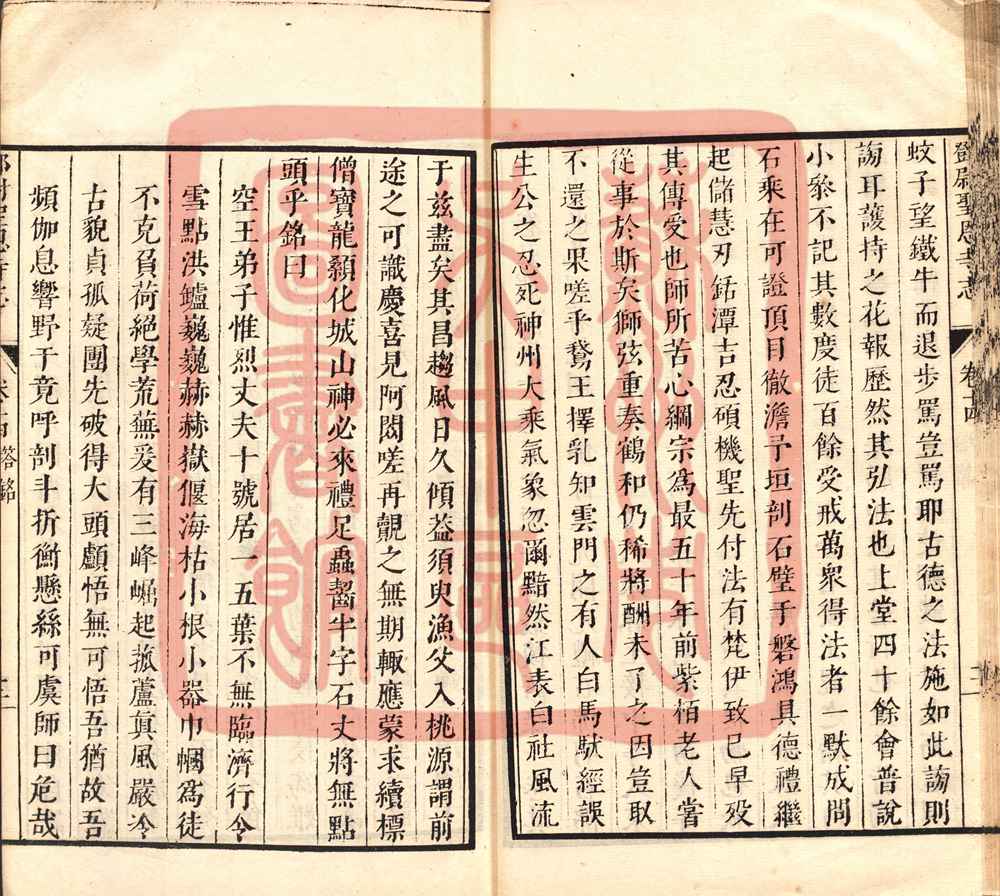 鄧尉聖恩寺志
卷十四
蚊子望鐵牛而退步罵豈罵耶古德之法施如此詢則
詢耳護持之花報歷然其弘法也上堂四十餘會普說
小叅不記其數度徒百餘受戒萬衆得法者一默成問
石乘在可證頂目徹澹予垣剖石璧于磐鴻具德禮繼
起儲慧刃銛潭吉忍碩機聖先付法有梵伊致已早歿
其傳受也師所苦心綱宗爲最五十年前紫栢老人嘗
從事於斯矣獅弦重奏鶴和仍稀將酬未了之因豈取
不還之果嗟乎鵞王擇乳知雲門之有人白馬馱經誤
生公之忍死神州大乘氣象忽爾黯然江表白社風流
于兹盡矣其昌趨風日久傾葢須臾漁父入桃源謂前
途之可識慶喜見阿閦嗟再覿之無期輙應蒙求續標
僧寶龍額化城山神必來禮足蟲齧半字石丈將無點
頭乎銘曰
空王弟子惟烈丈夫十號居一五葉不無臨濟行令
雪點洪鑪巍巍赫赫嶽偃海枯小根小器巾幗爲徒
不克負荷絕學荒蕪爰有三峰崛起菰蘆眞風嚴冷
古貌貞孤疑團先破得大頭顱悟無可悟吾猶故吾
頻伽息響野干竟呼剖斗折衡懸絲可虞師曰危哉